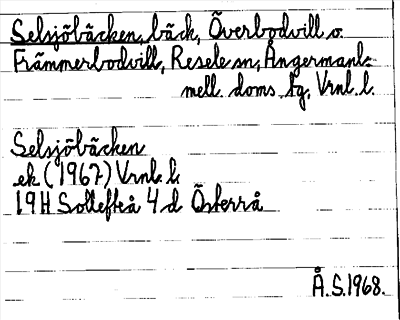 Selsjöbäcken, bäck, Överbodvill o.
Främmerbodvill, Resele sn, Ångermanl:
mell. doms. tg, Vrnl. l.
Selsjöbäcken
ek (1967) Vrnl. l.
19H Sollefteå 4 d Österrå
Å.S.1968.